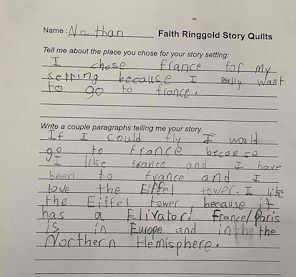 Name: Nathan Faith Ringgold Story Quilts
Tell me about the place you chose for your story setting:
I chose France for my
setting because I really want
to go to france.
Write a couple paragraphs telling me your story.
If I could fly I would
go to france because
I like france and I have
been to france and I
love the Eiffel tower. I like
the Eiffel tower because it
has a Elivator! France/Paris
is in Europe and in the the
Northern Hemisphere.